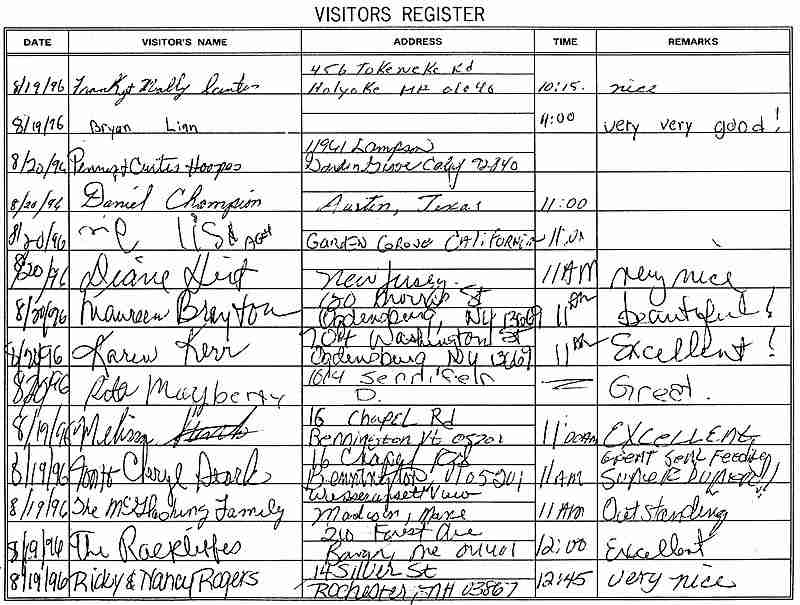 VISITORS REGISTER
DATE VISITOR'S NAME ADDRESS TIME REMARKS
456 Tokeneke Rd
8/19/96 Holyoke MA 01040 10:15. nice
8/19/96 Bryan Linn 11:00 very very good!
11941 Lampson
8/20/96 Penny & Curtis Hoopes Garden Grove Calif 92840
8/20/96 Daniel Champion Austin, Texas 11:00
8/20/96 GARDEN GROVE CALIFORNIA
8/20/96 Diane New Jersey. 11AM very nice
St
8/20/96 Maureen Brayton Ogdensburg, NY 13669 11AM beautiful!
204 Washington St
Karen Kerr Ogdensburg NY 13669 11AM Excellent!
Mayberry Great.
16 Chapel Rd
8/19/96 Melissa Bennington Vt 05201 11:00AM EXCELLENT
16 Chapel Rd
8/19/96 Cheryl Bennington Vt 05201 11AM
8/19/96 The Family Madison, Maine 11AM Outstanding
Forest Ave
8/19/96 The Rackliffes Bangor, Me 04401 12:00 Excellent
14 Silver St
8/19/96 Ricky & Nancy Rogers Rochester, NH 03867 12:45 very nice